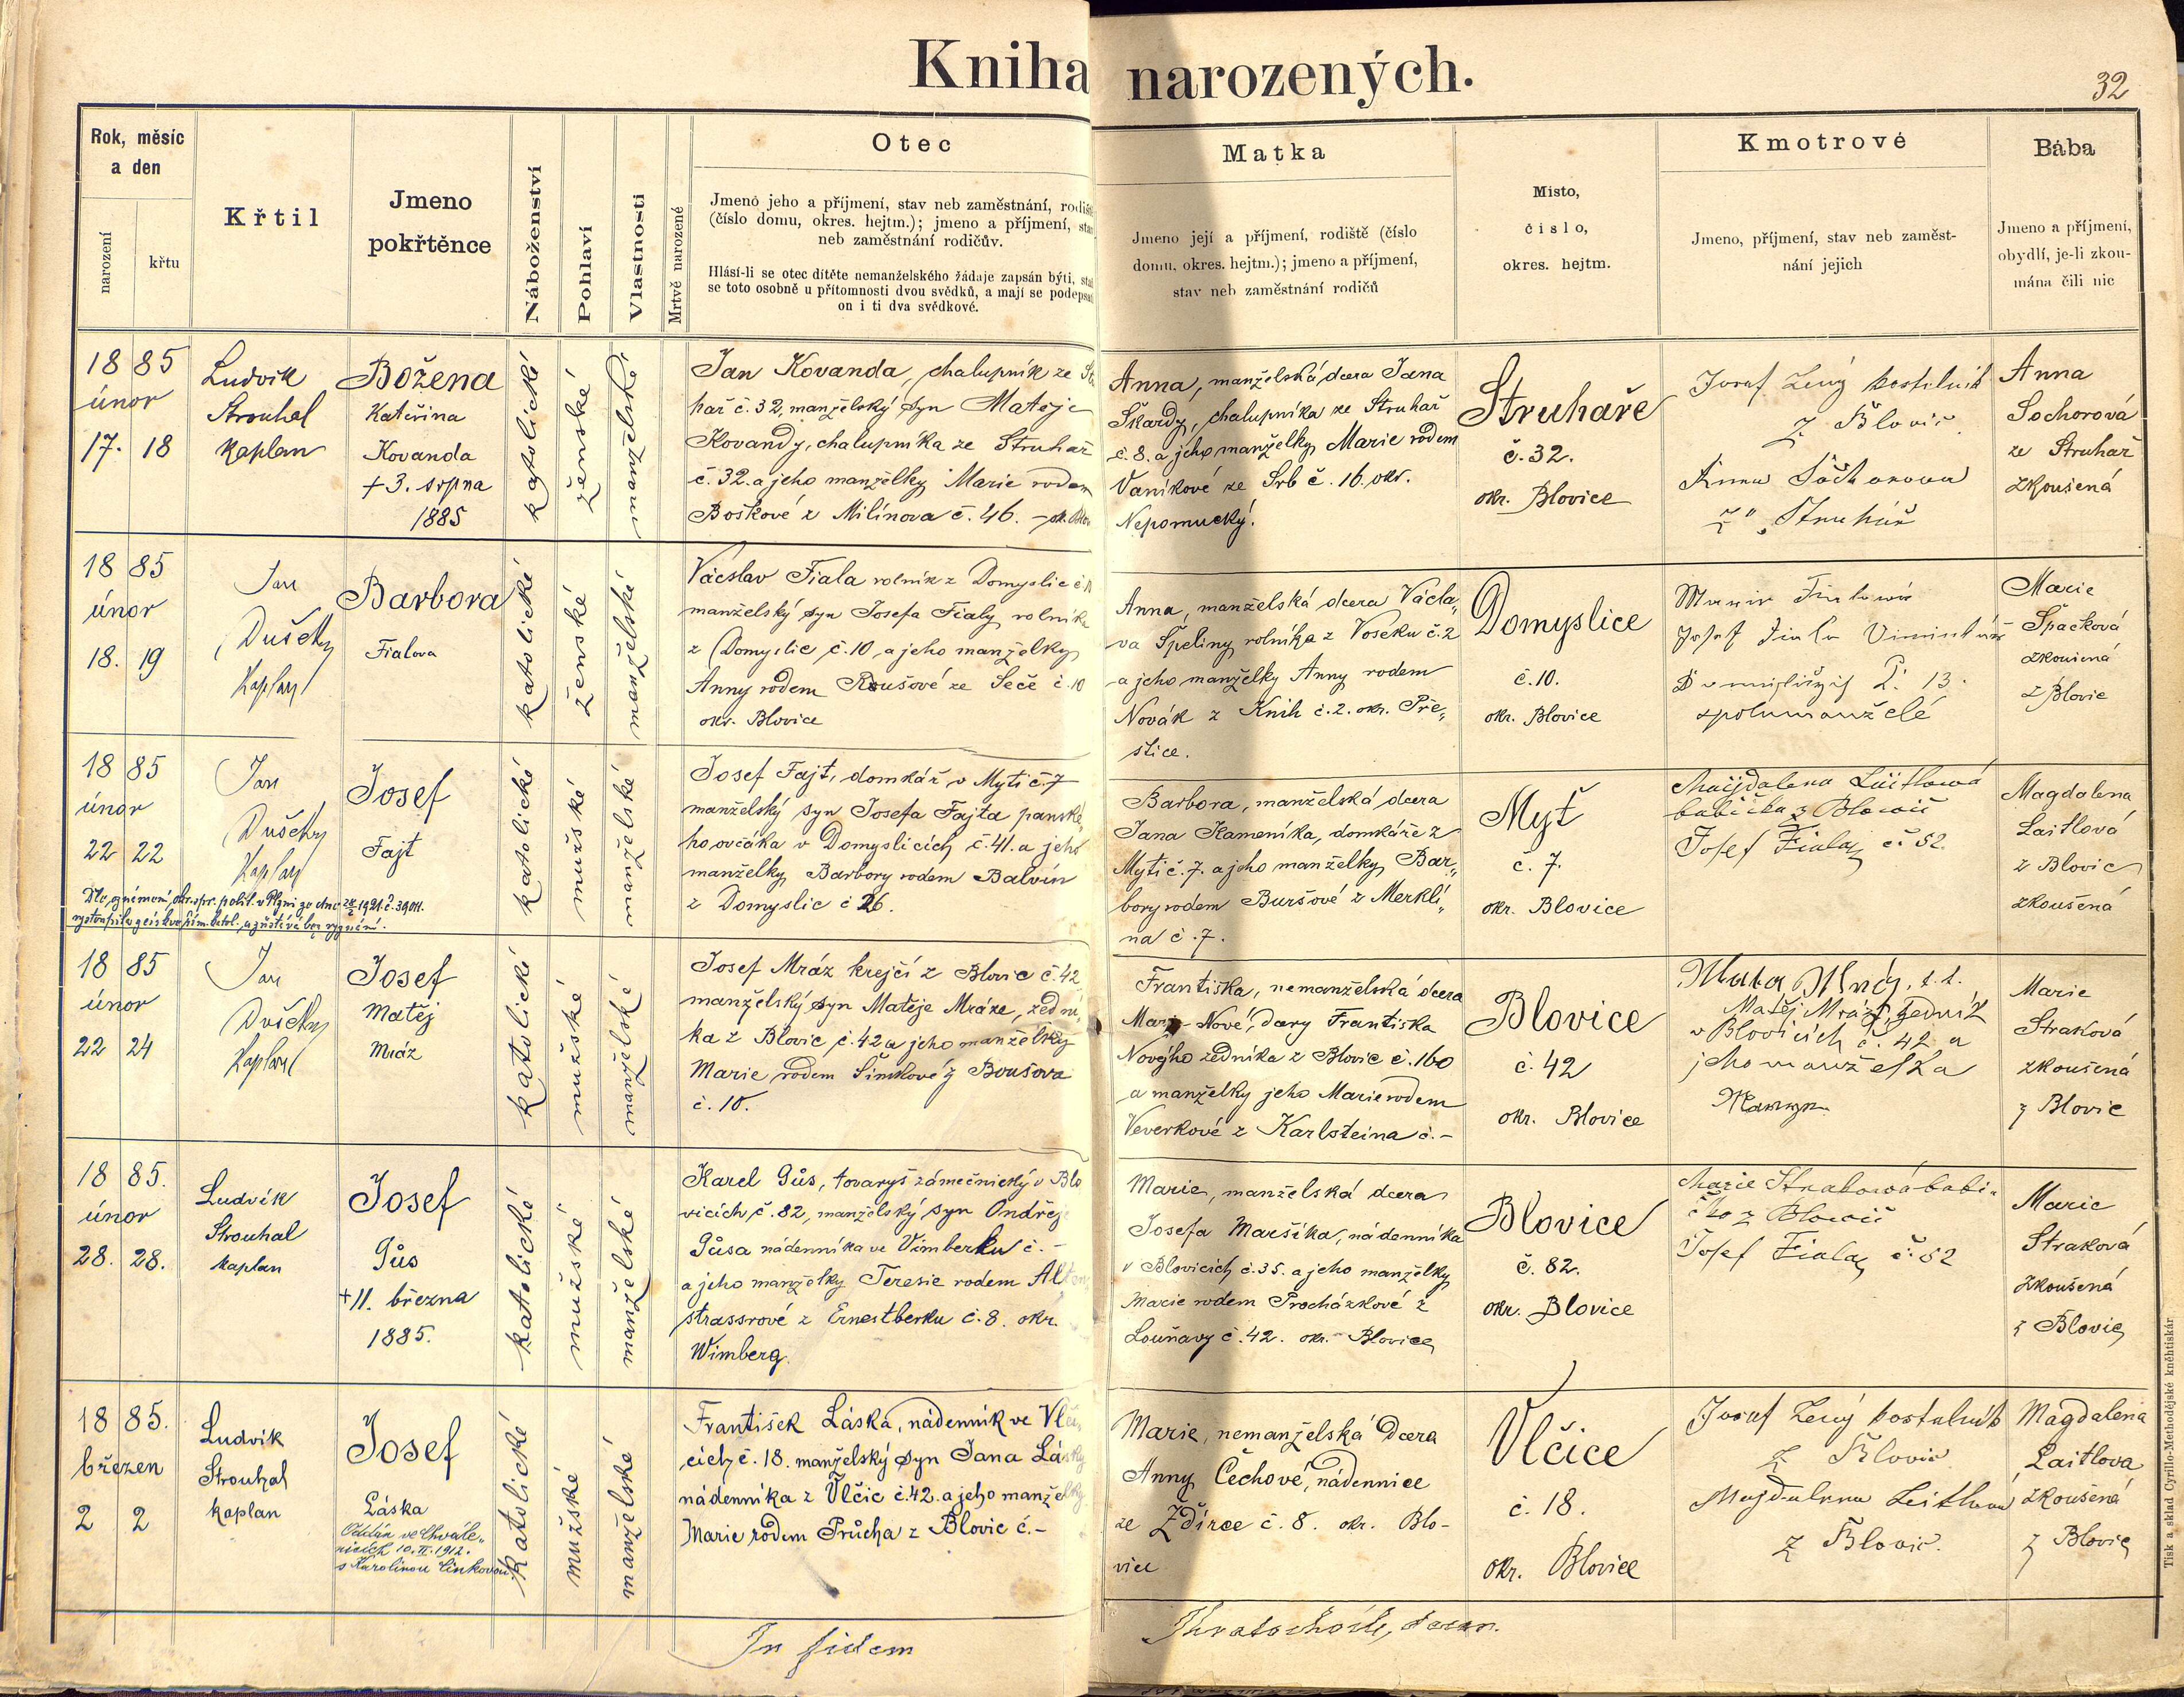 Kniha narozených.
32
Rok, měsíc
a den
narození
křtu
Křtil
Jmeno
pokřtěnce
Náboženství
Pohlaví
Vlastnosti
Mrtvě narozené
Otec
Jmeno jeho a příjmení, stav neb zaměstnání, rodiště
(číslo domu, okres. hejtm.); jmeno a příjmení, stav
neb zaměstnání rodičův.
Hlásí-li se otec dítěte nemanželského žádaje zapsán býti, staň
se toto osobně u přítomnosti dvou svědků, a mají se podepsati
on i ti dva svědkové.
Matka
Jmeno její a příjmení, rodiště (číslo
domu, okres. hejtm.); jmeno a příjmení,
stav neb zaměstnání rodičů
Místo,
číslo,
okres. hejtm.
Kmotrové
Jmeno, příjmení, stav neb zaměst-
nání jejich
Bába
Jmeno a příjmení,
obydlí, je-li zkou-
mána čili nic
18 85
únor
17. 18
Ludvík
Strouhal
kaplan
Božena
Kateřina
Kovanda
+ 3. srpna
1885
katolické
ženské
manželské
Jan Kovanda, chalupník ze Stru
hař č. 32, manželský syn Matěje
Kovandy, chalupníka ze Struhař
č. 32. a jeho manželky Marie rodem
Boškové z Milínova č. 46. – ok. Blov
Anna, manželská dcera Jana
Škardy, chalupníka ze Struhař
č. 8. a jeho manželky Marie rodem
Vaníkové ze Srb č. 16. okr.
Nepomucký.
Struhaře
č. 32.
okr. Blovice
Josef Zený kostelník
z Blovic
Anna Sochorova
z Struhař
Anna
Sochorová
ze Struhař
zkoušená
18 85
únor
18. 19
Jan
Dušek
Kaplan
Barbora
Fialova
katolické
ženské
manželské
Václav Fiala rolník z Domyslic č.
manželský syn Josefa Fialy rolníka
z Domyslic č. 10, a jeho manželky
Anny rodem Roušové ze Seče č. 10
okr. Blovice
Anna, manželská dcera Václa„
va Špeliny rolníka z Voseku č. 2
a jeho manželky Anny rodem
Novák z Knih č. 2. okr. Pře„
stice.
Domyslice
č. 10.
okr. Blovice
Marie Fialová
Josef Fiala
č. 13.
spolumanželé
Marie
Špačková
zkoušená
z Blovic
18 85
únor
22 22
Jan
Dušek
Kaplan
Josef
Fajt
katolické
mužské
manželské
Josef Fajt, domkář v Mytí č. 7
manželský syn Josefa Fajta panské„
ho ovčáka v Domyslicích č. 41. a jeho
manželky Barbory rodem Balvín
z Domyslic č 26.
Barbora, manželská dcera
Jana Kameníka, domkáře z
Mytí č. 7. a jeho manželky Bar„
bory rodem Buršové z Merklí„
na č. 7.
Myť
č. 7.
okr. Blovice
Majdalena Laitlová
babička z Blovic
Josef Fiala č. 52.
Magdalena
Laitlová
z Blovic
zkoušená
18 85
únor
22 24
Jan
Dušek
Kaplan
Josef
Matěj
Mráz
katolické
mužské
manželské
Josef Mráz krejčí z Blovic č. 42
manželský syn Matěje Mráze, zední„
ka z Blovic č. 42 a jeho manželky
Marie rodem Šimkové z Boušova
č. 10.
Františka, nemanželská dcera
Marie Nové, dcery Františka
Nového zedníka z Blovic č. 160
a manželky jeho Marie rodem
Veverkové z Karlsteina č. –
Blovice
č. 42
okr. Blovice
Matěj Mráz, zedník
v Blovicích č. 42 a
jeho manželka
Marie
Straková
zkoušená
z Blovic
18 85.
únor
28. 28.
Ludvík
Strouhal
kaplan
Josef
Gůs
+ 11. března
1885.
katolické
mužské
manželské
Karel Gůs, tovaryš zámečnický v Blo
vicích č. 82, manželský syn Ondřeje
Gůsa nádenníka ve Vimberku č. –
a jeho manželky Teresie rodem Alten
strassrové z Ernestberku č. 8. okr.
Wimberg.
Marie, manželská dcera
Josefa Maršíka, nádenníka
v Blovicích č. 35. a jeho manželky
Marie rodem Procházkové z
Louňavy č. 42. okr. Blovice
Blovice
č. 82.
okr. Blovice
Marie Straková babi-
čka z Blovic
Josef Fiala č. 52
Marie
Straková
zkoušená
z Blovic
18 85.
březen
2 2
Ludvík
Strouhal
kaplan
Josef
Láska
Oddán ve Chvále„
nicích 10. II. 1912.
s Karolinou Činkovou
katolické
mužské
manželské
František Láska, nádenník ve Vlči
cích č. 18. manželský syn Jana Lásky
nádenníka z Vlčic č. 42. a jeho manželky
Marie rodem Průcha z Blovic č. –
Marie, nemanželská dcera
Anny Čechové, nádennice
ze Ždírce č. 8. okr. Blo-
vice
Vlčice
č. 18.
okr. Blovice
Josef Zený kostelník
z Blovic
Majdalena Leitlova
z Blovic.
Magdalena
Laitlova
zkoušená
z Blovic
In fidem
děkan.
Tisk a sklad Cyrillo-Methodějské kněhtiskár